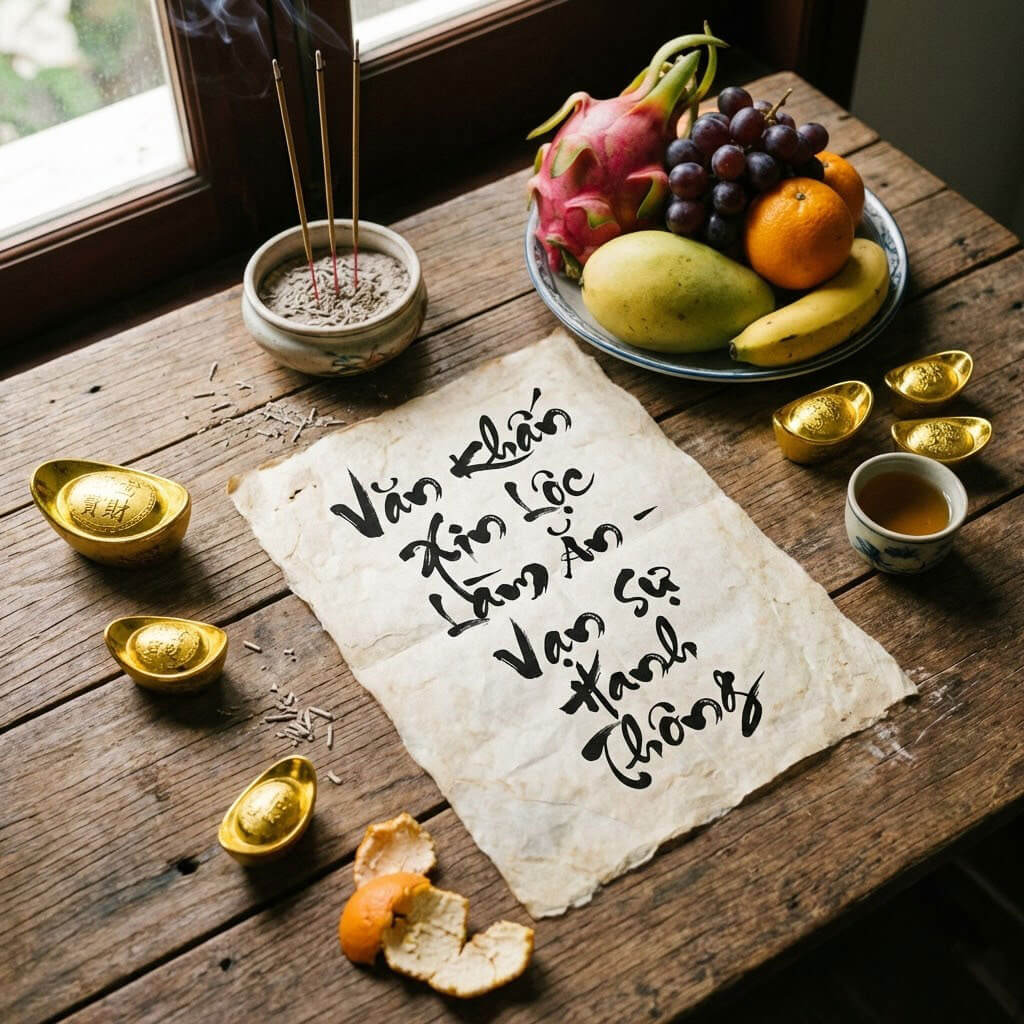 Văn Khấn
Xin Lộc
Làm Ăn -
Vạn Sự
Hanh
Thông